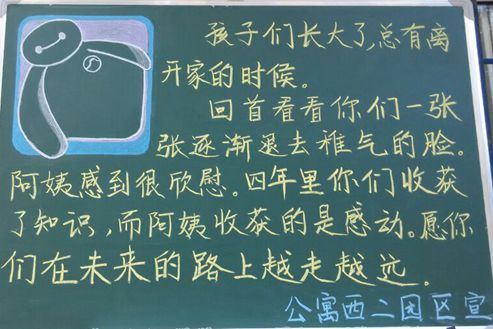 孩子们长大了,总有离
开家的时候。
回首看看你们一张
张逐渐退去稚气的脸。
阿姨感到很欣慰。四年里你们收获
了知识,而阿姨收获的是感动。愿你
们在未来的路上越走越远。
公寓西二园区宣